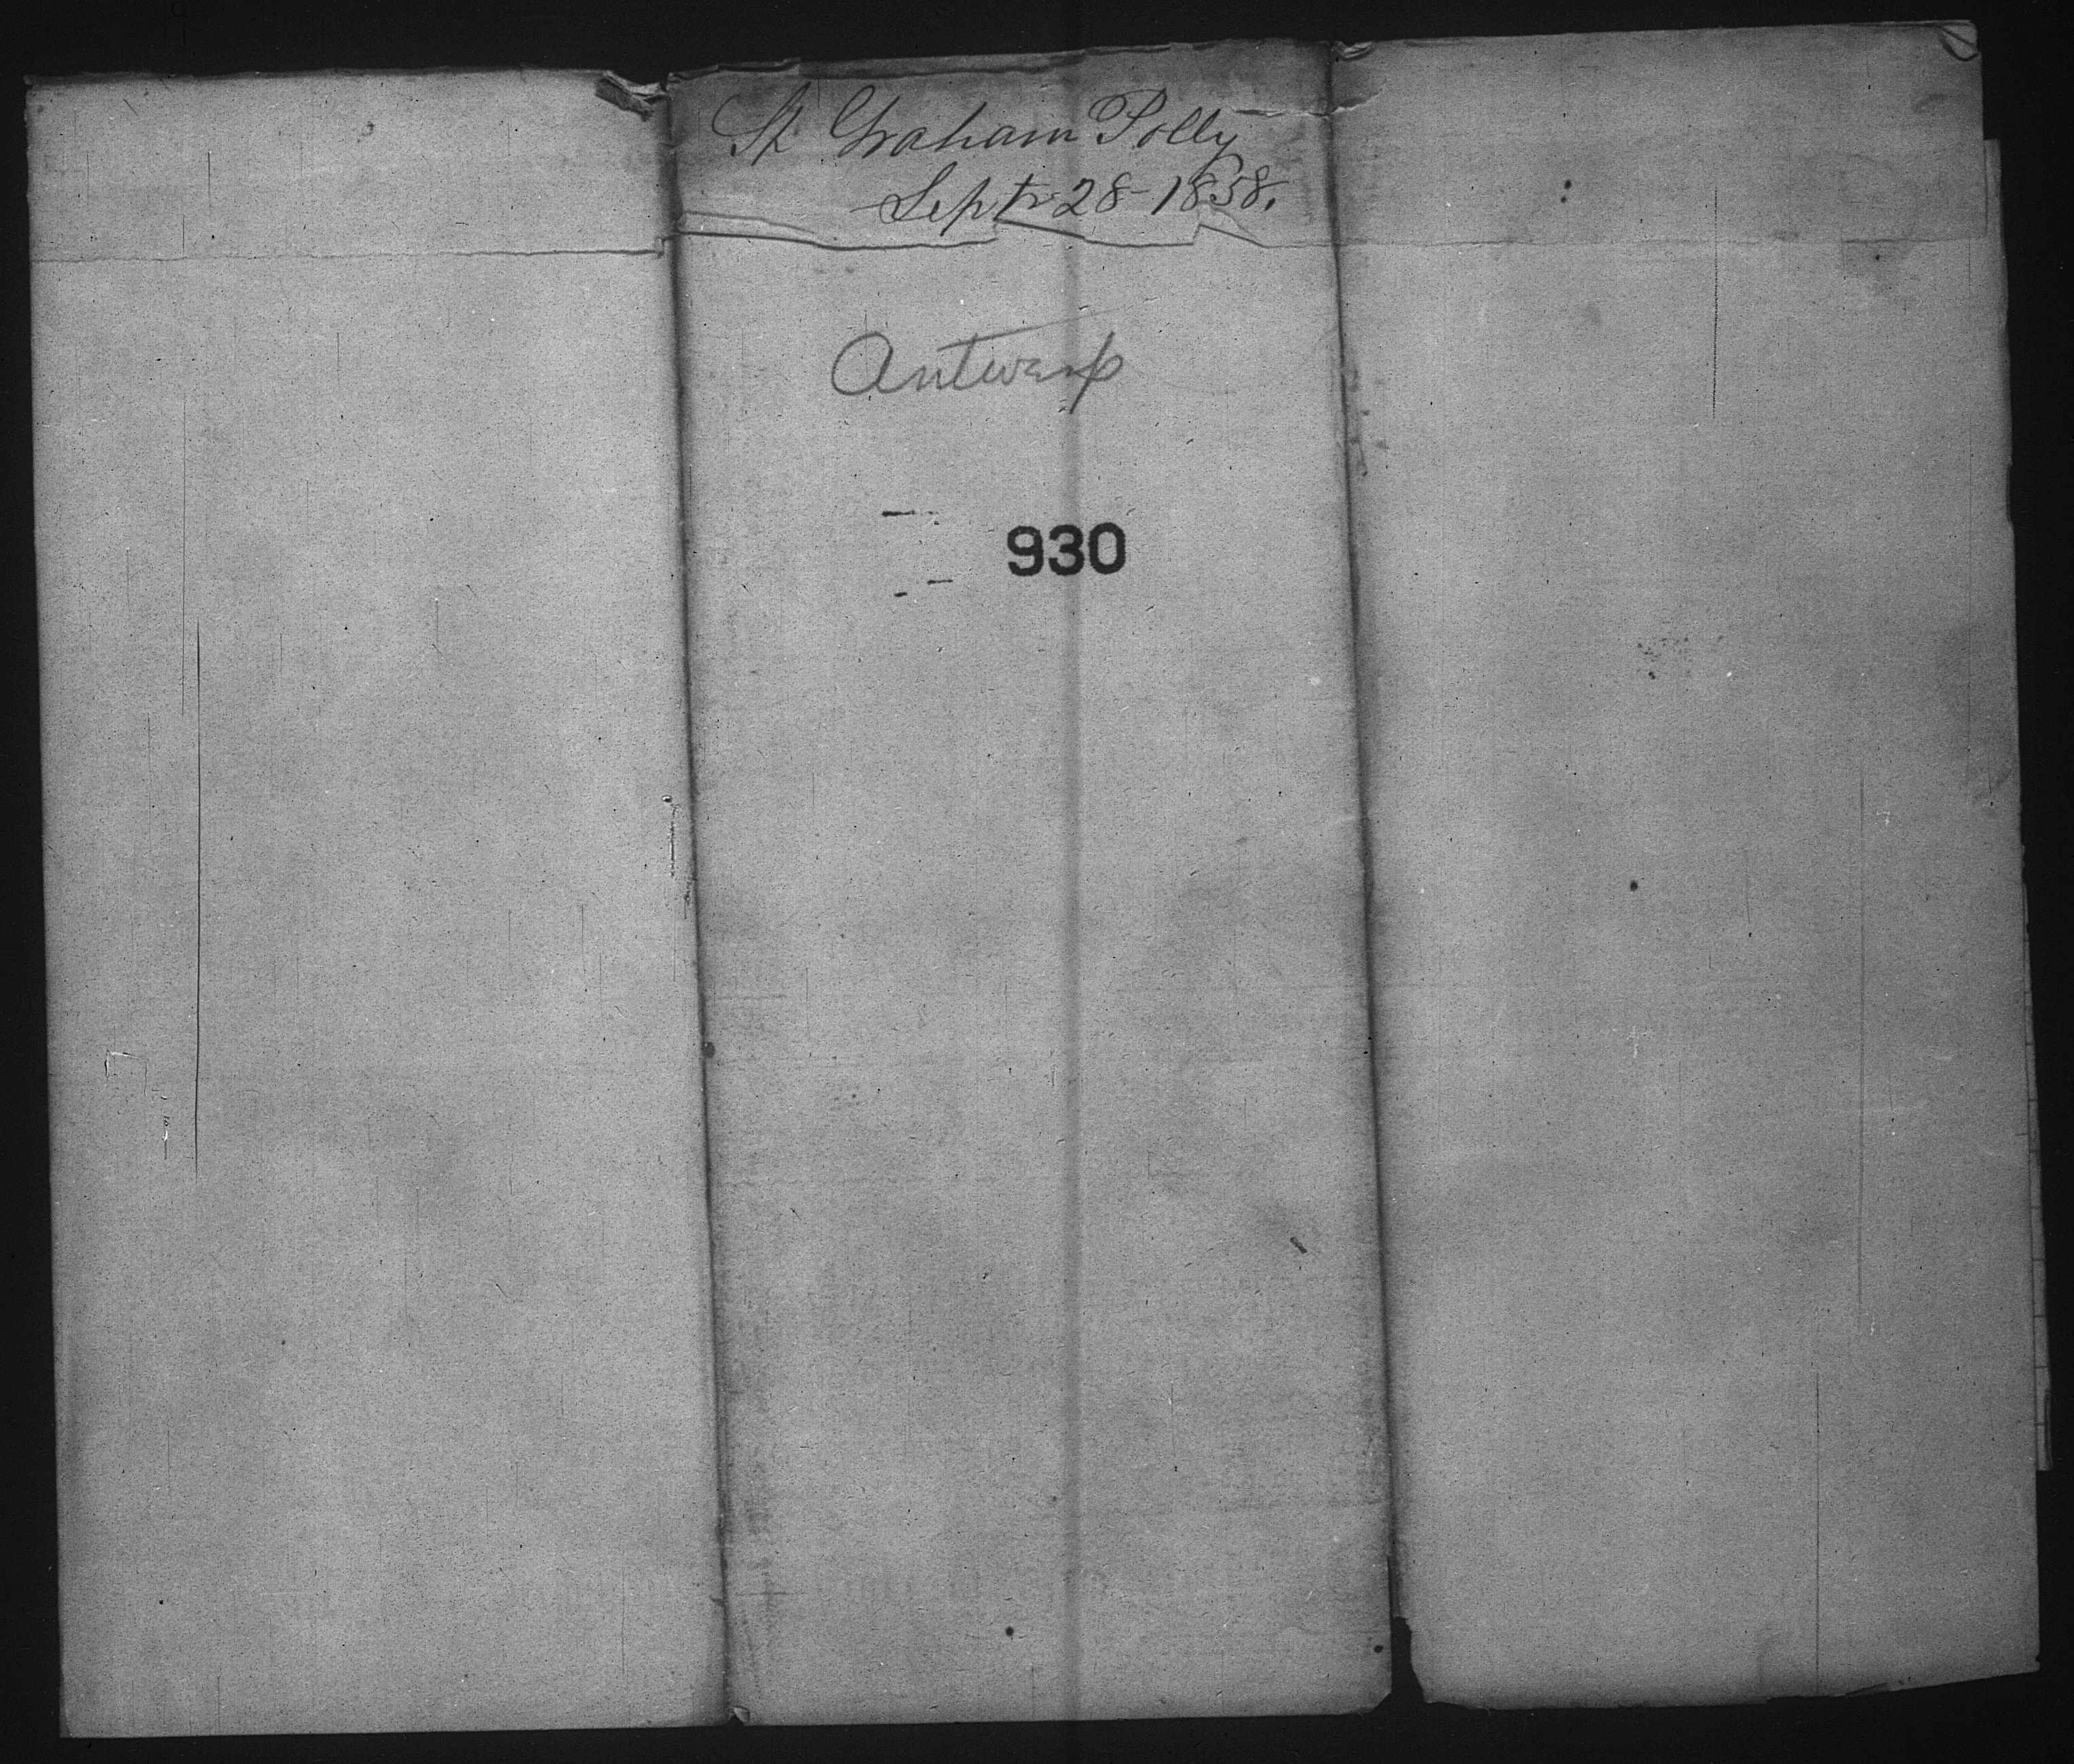 St Graham Polly
Septr 28 - 1858.
Antwerp
930